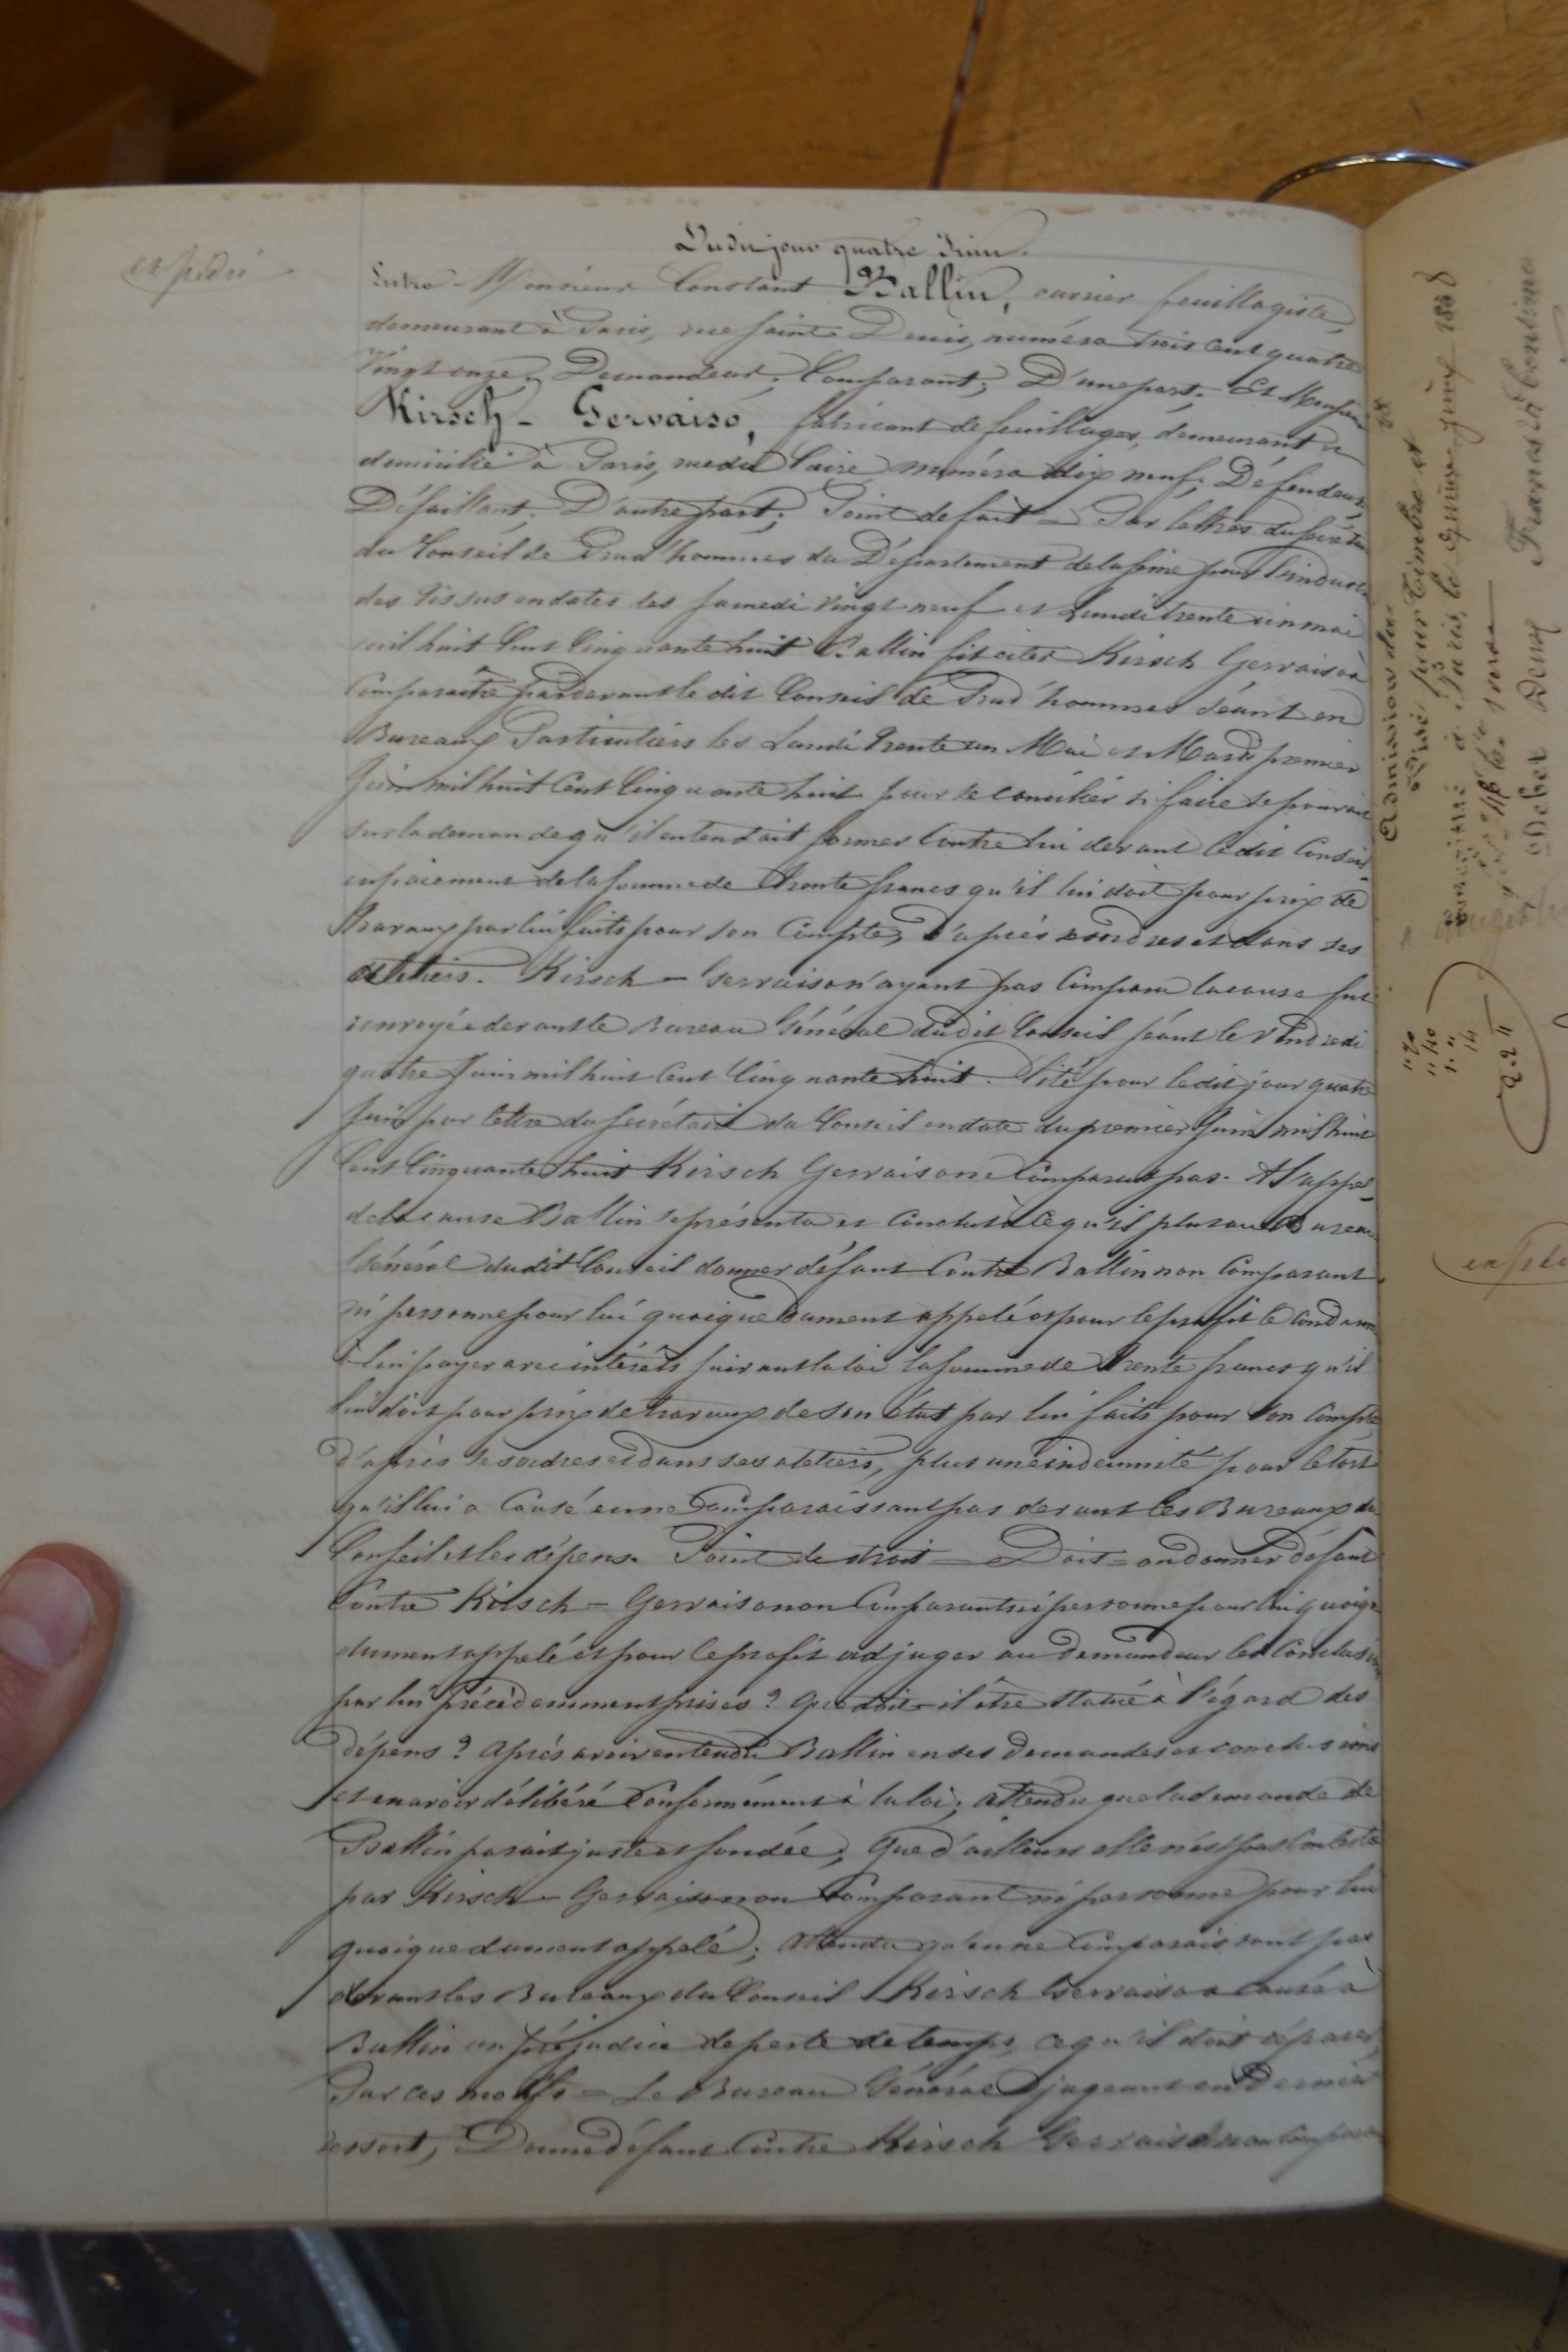 expédié
Dudit jour quatre Juin.
Entre Monsieur Constant Ballin, ouvrier feuillagiste,
demeurant à Paris, rue Saint Denis, numéro trois cent quatre
vingt onze; Demandeur; Comparant; D'une part; Et Monsieur
Kirsch-Gervaiso, fabricant de feuillages, demeurant et
domicilié à Paris, rue du Caire numéro dix neuf; Défendeur;
Défaillant; D'autre part; Point de fait = Par lettres du secrétaire
du Conseil de Prud'hommes du Département de la Seine pour l'industrie
des tissus en dates les samedi vingt neuf et Lundi trente un mai
mil huit cent cinquante huit Ballin fit citer Kirsch Gervaiso à
comparaître par devant le dit Conseil de Prud'hommes séant en
Bureaux Particuliers les Lundi trente un Mai et Mardi premier
Juin mil huit cent cinquante huit pour se concilier si faire se pouvait
sur la demande qu'il entendait former contre lui devant ledit Conseil
en paiement de la somme de trente francs qu'il lui doit pour prix de
travaux par lui faits pour son compte, d'après ses ordres et dans ses
ateliers. Kirsch-Gervaiso n'ayant pas comparu la cause fut
renvoyée devant le Bureau Général dudit Conseil séant le Vendredi
quatre Juin mil huit cent cinquante huit. Cité pour ledit jour quatre
Juin par lettre du secrétaire du Conseil en date du premier Juin mil huit
cent cinquante huit Kirsch Gervaiso ne comparut pas. A l'appel
de la cause Ballin se présenta et conclut à ce qu'il plut au Bureau
Général dudit Conseil donner défaut contre Ballin non comparant
ni personne pour lui quoique dument appelé et pour le profit le condamner
à lui payer avec intérêts suivant la loi la somme de trente francs qu'il
lui doit pour prix de travaux de son état par lui faits pour son compte
d'après ses ordres et dans ses ateliers, plus une indemnité pour le tort
qu'il lui a causé en ne comparaissant pas devant les Bureaux du
Conseil et les dépens. Point de droit = Doit-on donner défaut
contre Kirsch-Gervaiso non comparant ni personne pour lui quoique
dument appelé et pour le profit adjuger au demandeur les conclusions
par lui précédemment prises? Que doit-il être statué à l'égard des
dépens? Après avoir entendu Ballin en ses demandes et conclusions
et en avoir délibéré conformément à la loi; Attendu que la demande de
Ballin parait juste et fondée; Que d'ailleurs elle n'est pas contestée
par Kirsch-Gervaiso non comparant ni personne pour lui
quoique dument appelé; Attendu qu'en ne comparaissant pas
devant les Bureaux du Conseil Kirsch Gervaiso a causé à
Ballin un préjudice de perte de temps, ce qu'il doit réparer;
Par ces motifs = Le Bureau Général jugeant en dernier
ressort; Donne défaut contre Kirsch Gervaiso non comparant